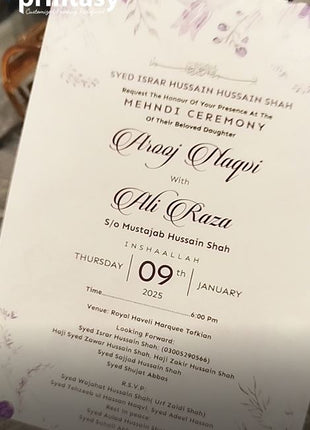 printasy
SYED ISRAR HUSSAIN HUSSAIN SHAH
Request The Honour Of Your Presence At The
MEHNDI CEREMONY
Of Their Beloved Daughter
Arooj Naqvi
With
Ali Raza
S/o Mustajab Hussain Shah
INSHAALLAH
THURSDAY 09th JANUARY
2025
Time....................6:00 Pm
Venue: Royal Haveli Marquee Tofkian
Looking Forward:
Syed Israr Hussain Shah: (03005290566)
Haji Syed Zawar Hussain Shah, Haji Syed Azhar Hussain Shah
Syed Sajjad Hussain Shah
Syed Shujat Abbas
R.S.V.P:
Syed Wajahat Hussain Shah( Urf Zaidi Shah)
Syed Tehzeeb ul Hassan Naqvi, Syed Adeel Hassan
Rest in peace:
Syed Hussain Shah
Syed